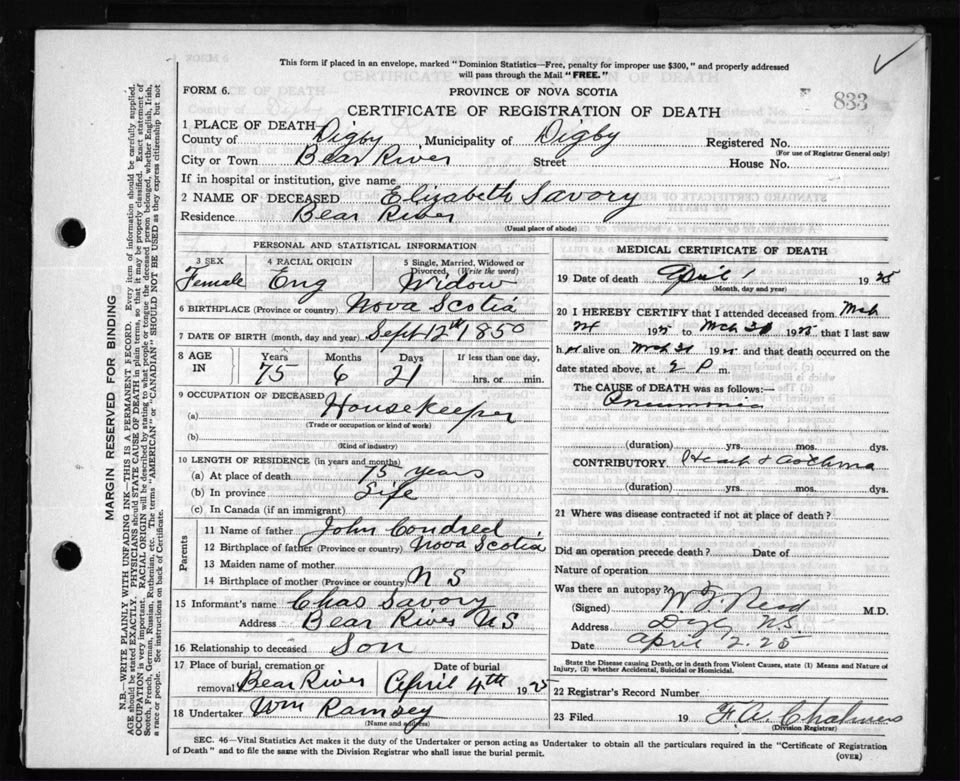 This form if placed in an envelope, marked "Dominion Statistics—Free, penalty for improper use $300," and properly addressed
will pass through the Mail "FREE."
FORM 6.
PROVINCE OF NOVA SCOTIA
833
CERTIFICATE OF REGISTRATION OF DEATH
1 PLACE OF DEATH
County of Digby Municipality of Digby Registered No.
(For use of Registrar General only)
City or Town Bear River Street House No.
If in hospital or institution, give name
2 NAME OF DECEASED Elizabeth Savory
Residence Bear River
(Usual place of abode)
PERSONAL AND STATISTICAL INFORMATION
3 SEX 4 RACIAL ORIGIN 5 Single, Married, Widowed or
Divorced, (Write the word)
Female Eng Widow
6 BIRTHPLACE (Province or country) Nova Scotia
7 DATE OF BIRTH (month, day and year) Sept 12th 1850
8 AGE IN Years Months Days If less than one day,
75 6 21 hrs. or min.
9 OCCUPATION OF DECEASED
(a) Housekeeper
(Trade or occupation or kind of work)
(b)
(Kind of industry)
10 LENGTH OF RESIDENCE (in years and months)
(a) At place of death 75 years
(b) In province Life
(c) In Canada (if an immigrant)
Parents
11 Name of father John Condred
12 Birthplace of father (Province or country) Nova Scotia
13 Maiden name of mother
14 Birthplace of mother (Province or country) N S
15 Informant's name Chas Savory
Address Bear River NS
16 Relationship to deceased Son
17 Place of burial, cremation or Date of burial
removal Bear River April 4th 1925
18 Undertaker Wm Ramsey
(Name and address)
MEDICAL CERTIFICATE OF DEATH
19 Date of death April 1 1925
(Month, day and year)
20 I HEREBY CERTIFY that I attended deceased from Mch
24 1925 to Mch 31 1925, that I last saw
her alive on Mch 31 1925 and that death occurred on the
date stated above, at 2 P m.
The CAUSE of DEATH was as follows:—
Pneumonia
(duration) yrs. mos. dys.
CONTRIBUTORY. Heart & Asthma
(duration) yrs. mos. dys.
21 Where was disease contracted if not at place of death?
Did an operation precede death? Date of
Nature of operation
Was there an autopsy?
(Signed) M.D.
Address N.S.
Date April 2. 25
State the Disease causing Death, or in death from Violent Causes, state (1) Means and Nature of
Injury, (2) whether Accidental, Suicidal or Homicidal.
22 Registrar's Record Number
23 Filed 19
(Division Registrar)
SEC. 46—Vital Statistics Act makes it the duty of the Undertaker or person acting as Undertaker to obtain all the particulars required in the "Certificate of Registration
of Death" and to file the same with the Division Registrar who shall issue the burial permit.
(OVER)
MARGIN RESERVED FOR BINDING
N.B.—WRITE PLAINLY, WITH UNFADING INK—THIS IS A PERMANENT RECORD. Every item of information should be carefully supplied.
AGE should be stated EXACTLY. PHYSICIANS should STATE CAUSE OF DEATH in plain terms, so that it may be properly classified. Exact statement of
OCCUPATION is very important. RACIAL ORIGIN will be described by stating to what people or tongue the deceased person belonged, whether English, Irish,
Scotch, French, German, Russian, Ruthenian, etc. The terms "AMERICAN" or "CANADIAN" SHOULD NOT BE USED as they express citizenship but not
a race or people. See instructions on back of Certificate.